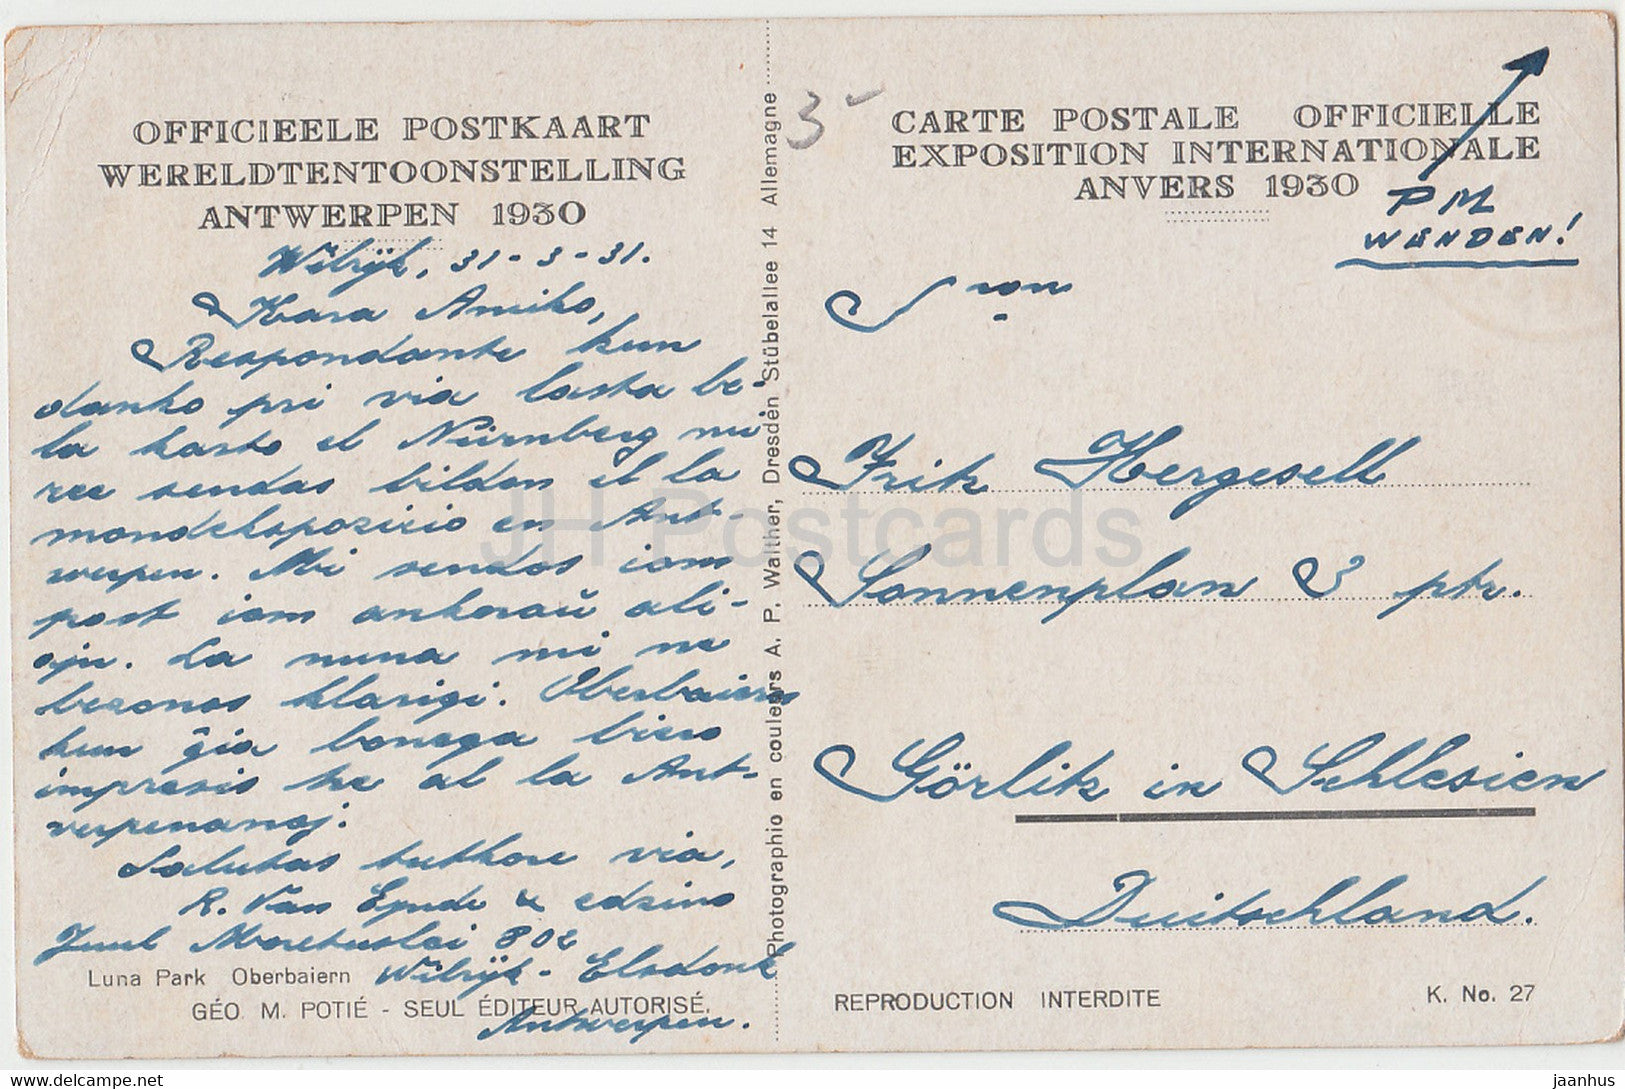 OFFICIEELE POSTKAART
WERELDTENTOONSTELLING
ANTWERPEN 1930
Wilrijk, 31-3-31.
Kara Amiko,
Respondante kun
danko pri via lasta be-
la karto el Nürnberg mi
ree sendas bildon el la
mondekspozicio en Ant-
werpen. Mi sendos iam
post iam ankoraŭ ali-
ajn. La nuna mi ne
bezonas klarigi. Oberbaiern
kun ĝia bonega biero
impresis ke al la Ant-
verpenanoj.
Salutas tutkore via,
R. Van Eynde & edzino
Juul Moretuslei 302
Wilrijk - Elsdonk
Antwerpen.
Luna Park Oberbaiern
GÉO M. POTIÉ - SEUL ÉDITEUR AUTORISÉ.
Photographie en couleurs A. P. Walther, Dresden Stübelallee 14 Allemagne
3-
CARTE POSTALE OFFICIELLE
EXPOSITION INTERNATIONALE
ANVERS 1930
PM
WENDEN!
Fritz Hergesell
Sonnenplan 3 ptr.
Görlitz in Schlesien
Deutschland.
REPRODUCTION INTERDITE
K. No. 27
JH Postcards
www.delcampe.net
jaanhus